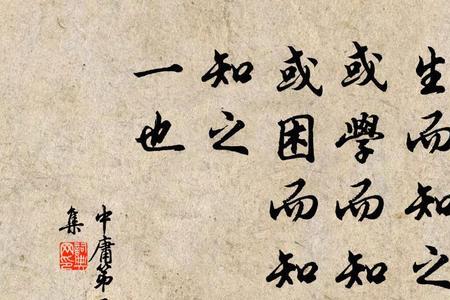 生而知之
或學而知
或困而知
知之
一也
中庸第
集